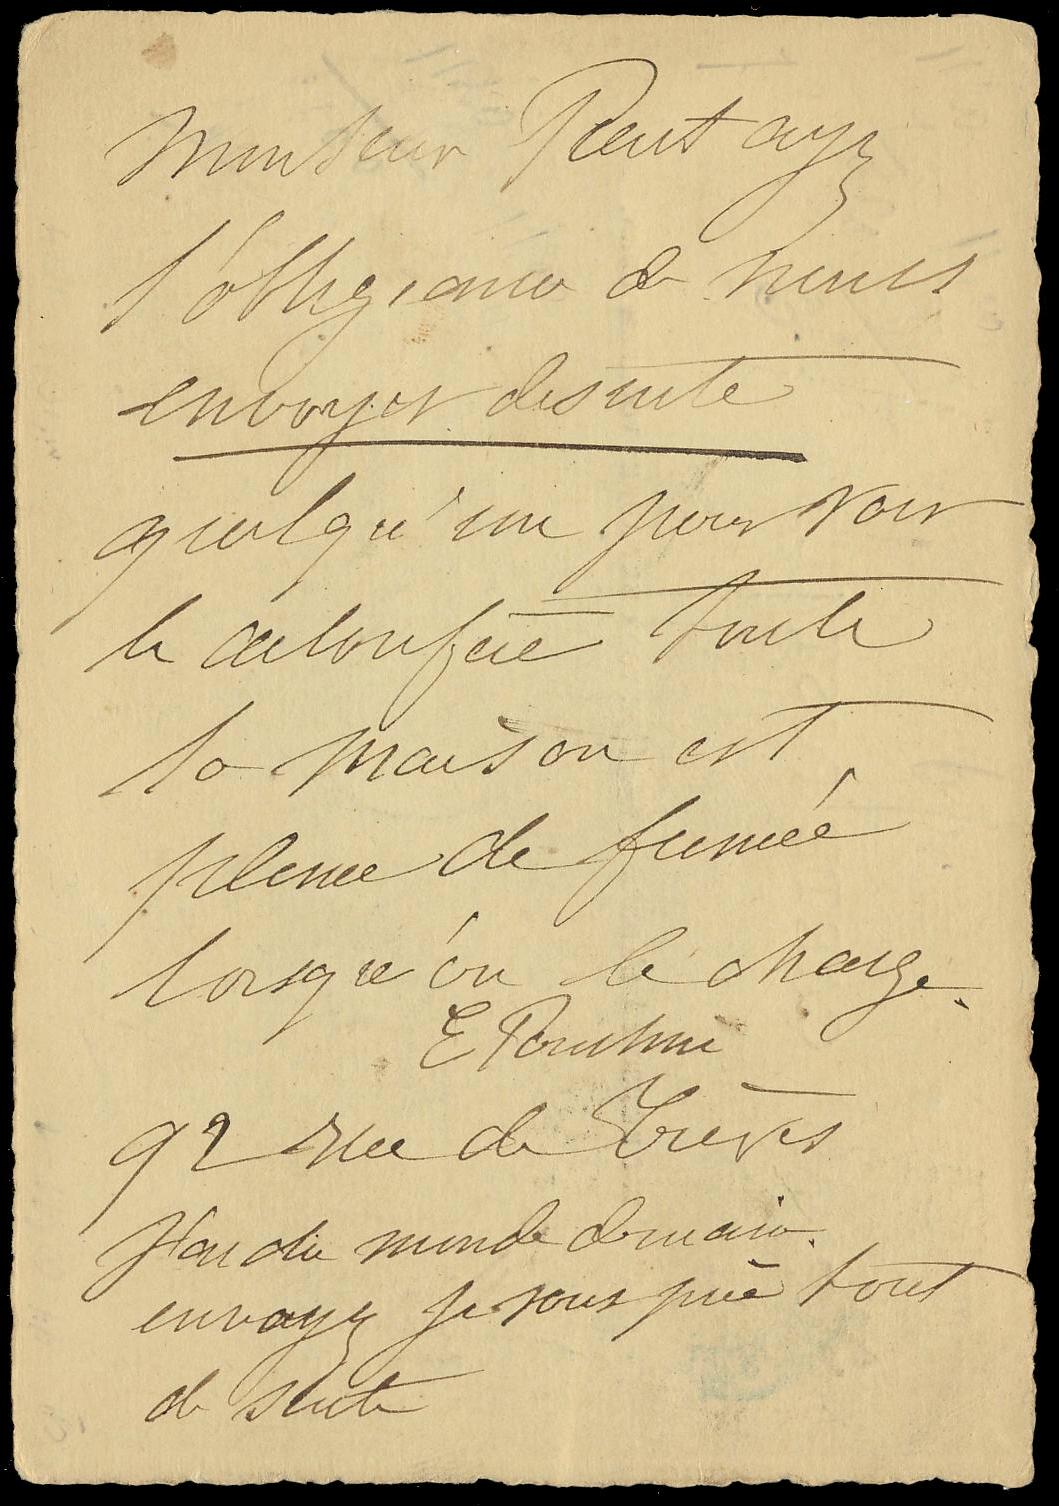 Monsieur ayez
l'obligeance de nous
envoyer desuite
quelqu'un pour voir
le calorifère toute
la maison est
pleine de fumée
lorsqu'on le charge.
E
92 rue de Trèves
J'ai du monde demain.
envoyez je vous prie tout
de suite